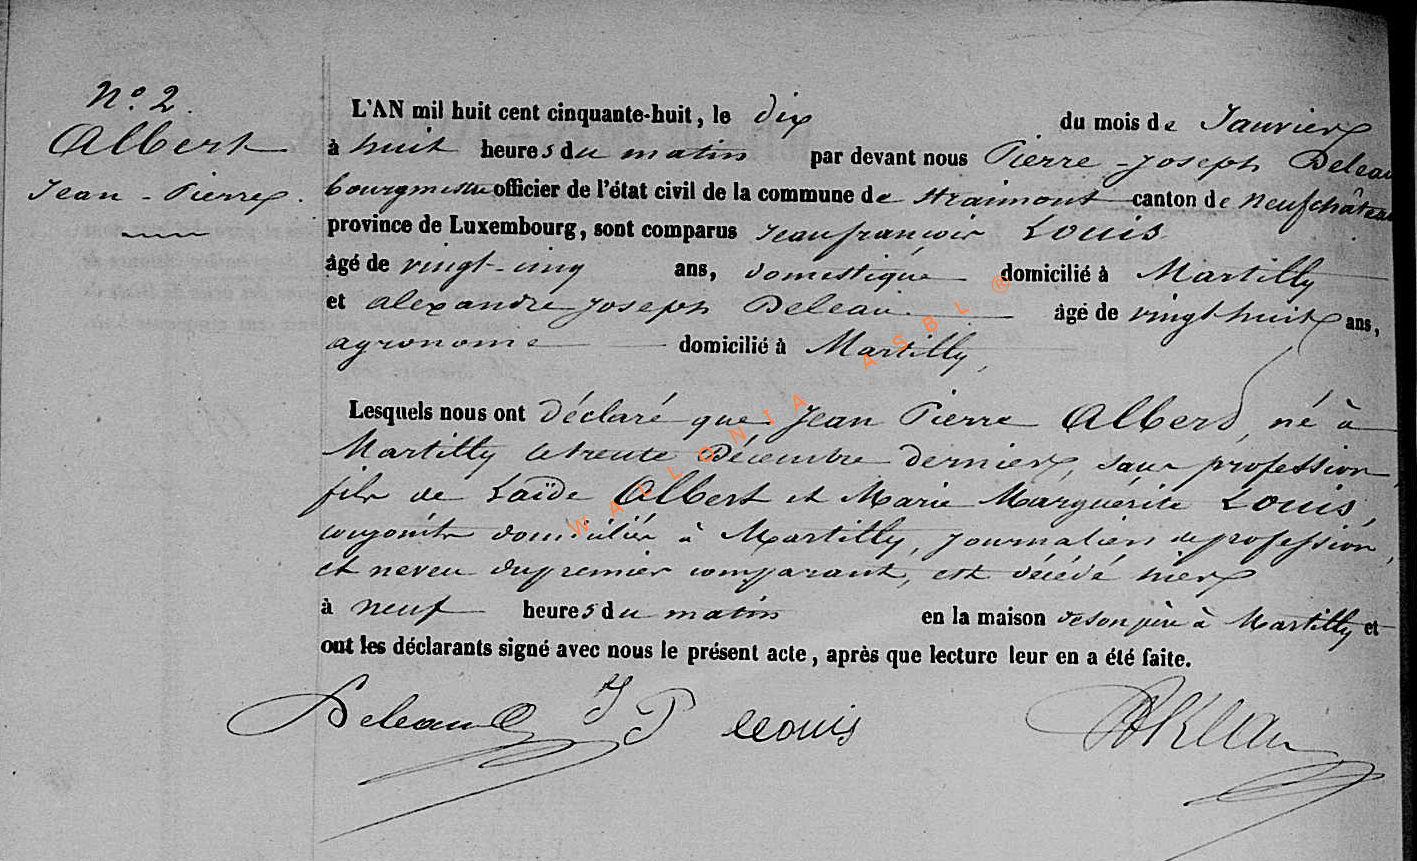 N.o 2.
Albert
Jean-Pierre.
L'AN mil huit cent cinquante-huit, le dix du mois de Janvier
à huit heures du matin par devant nous Pierre-Joseph Deleau
bourgmestre officier de l'état civil de la commune de Straimont canton de Neufchâteau
province de Luxembourg, sont comparus Jean françois Louis
âgé de vingt-cinq ans, domestique domicilié à Martilly
et alexandre joseph Deleau âgé de vingt huit ans,
agronome domicilié à Martilly,
Lesquels nous ont déclaré que Jean Pierre Albert, né à
Martilly le trente Décembre dernier, sans profession,
fils de Laïde Albert et Marie Marguerite Louis,
conjoints domiciliés à Martilly, journaliers de profession,
et neveu du premier comparant, est décédé hier
à neuf heures du matin en la maison de son père à Martilly et
ont les déclarants signé avec nous le présent acte, après que lecture leur en a été faite.
Deleau J P Louis
WALLONIA ASBL ®